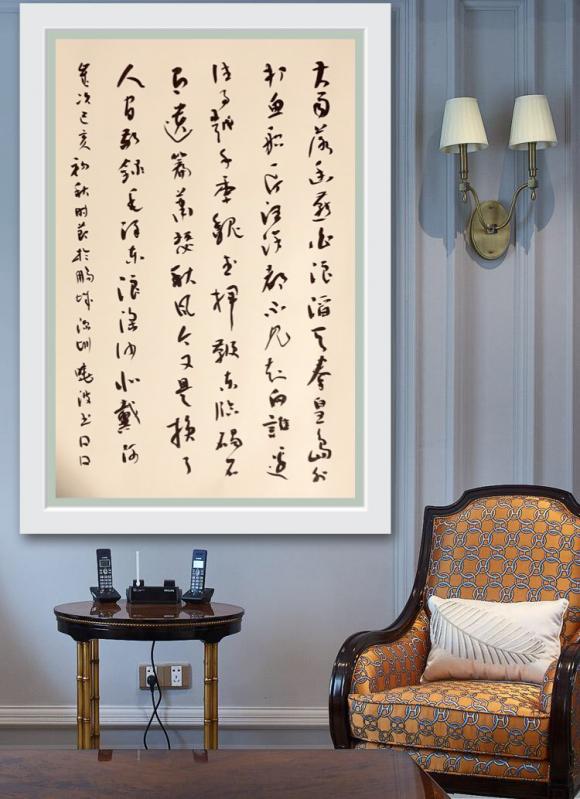 大雨落幽燕白浪滔天秦皇島外
打魚船一片汪洋都不见知向誰邊
往事越千年魏武揮鞭东临碣石
有遺篇萧瑟秋风今又是换了
人间敬録毛泽东浪淘沙北戴河
歲次己亥初秋时节於鹏城深圳晓波书